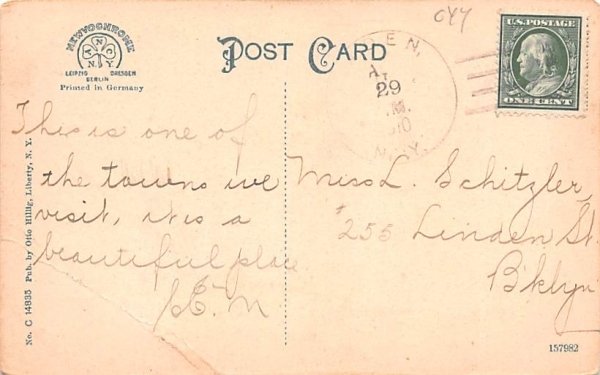 C44
NEWVOCHROME
A N C
N. Y.
LEIPZIG DRESDEN
BERLIN
Printed in Germany
POST CARD
EN,
29
M.
N.Y.
U.S. POSTAGE
ONE CENT
This is one of
the towns we
visit, it is a
beautiful place
Miss L. Schitzler,
# 255 Linden St.
B'klyn
No. C 14835 Pub. by Otto Hillig, Liberty, N. Y.
157982